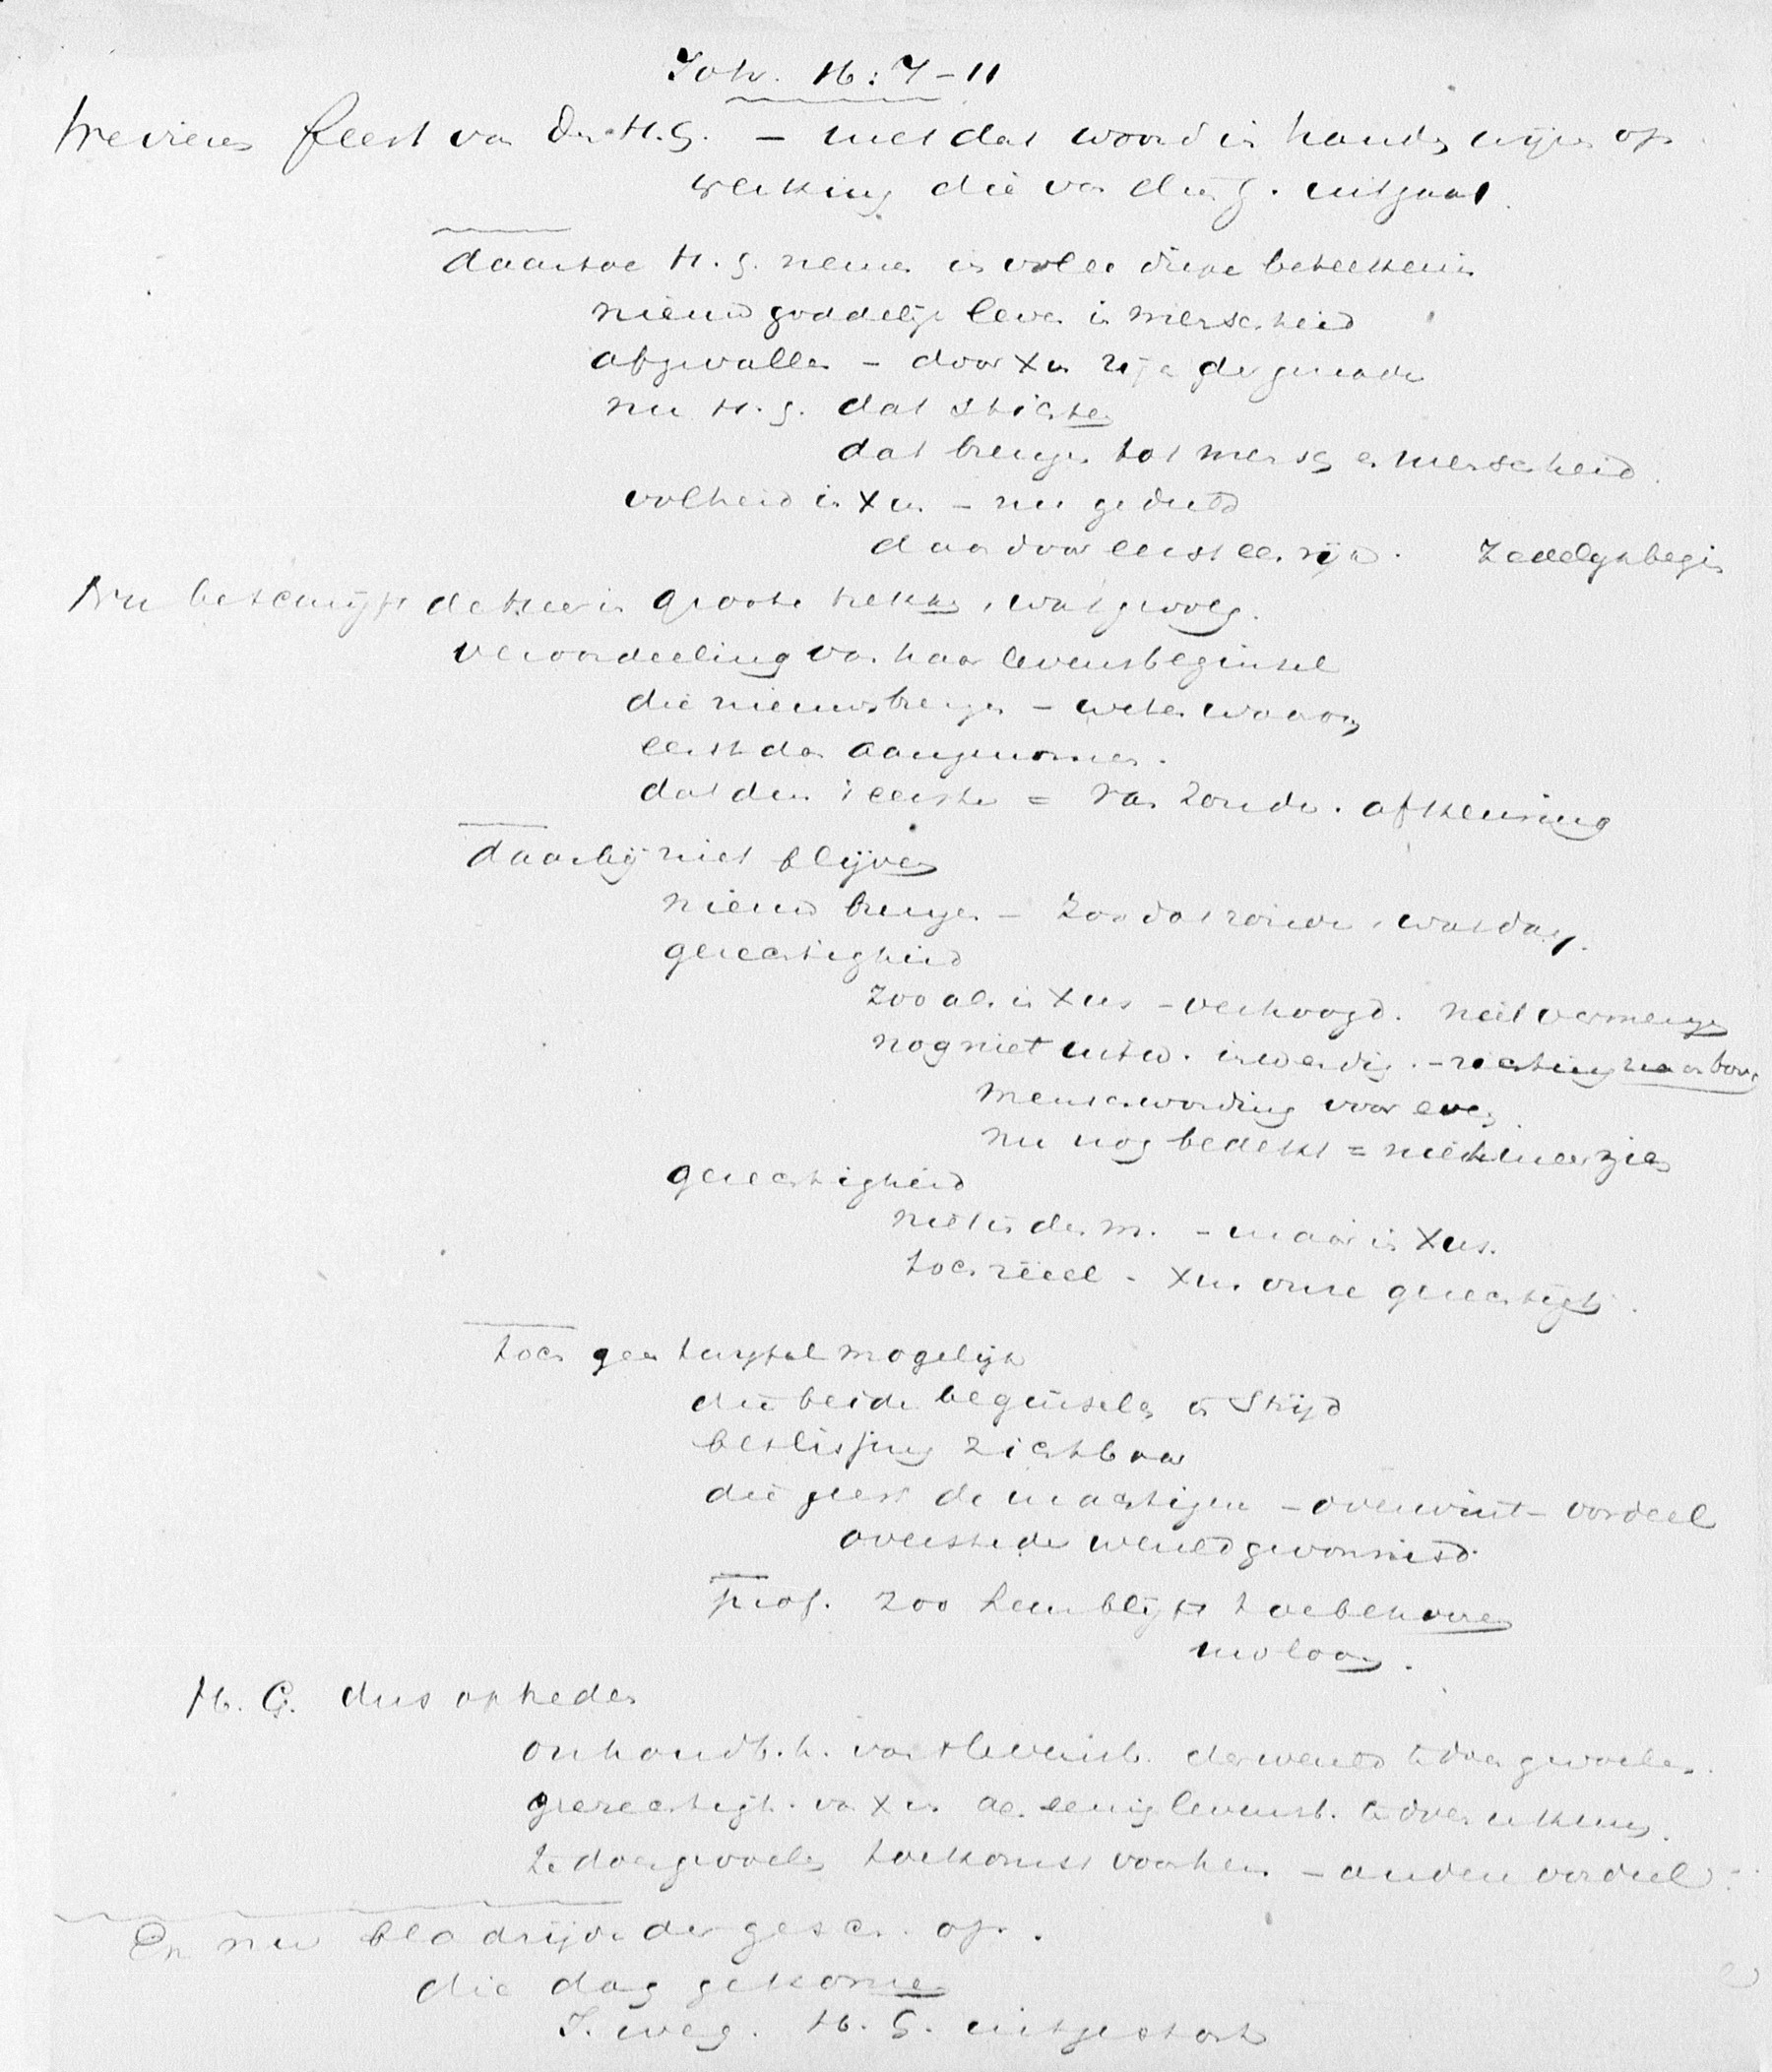 Joh. 16:7-11
We vieren feest van den H.G. - met dat woord in handen wijzen op
werking die van dien G. uitgaat.
daartoe H.G. nemen in volle diepe beteekenis
nieuw goddelijk leven in menschheid
afgevallen - door Xus zijn der genade
nu H.G. dat stichten
dat brengen tot mensch en menschheid.
volheid in Xus - nu geduld
daardoor eerst een rijk. Zedelijk begin
Nu beschrijft de Heer in groote trekken, wat gevolg.
veroordeeling van haar levensbeginsel
die nieuws brengen - weten waarom
eerst dan aangenomen.
dat dus 't eerste = van zonde. afkeuring
daarbij niet blijven
nieuw brengen - zoodat zonde, wat dan.
gerechtigheid
zooals in Xus - verhoogd. niet vermengen
nog niet uitw. inwendig. - richting naar boven
menschwording voor even
nu nog bedekt = niet meer zien
gerechtigheid
niet in den m. - maar in Xus.
toch reëel - Xus onze gerechtigh.
toch geen twijfel mogelijk
die beide beginselen in strijd
beslissing zichtbaar
die geest de machtigen - overwint - oordeel
overste der wereld gevonnisd.
prof. zoo hem blijft toebehooren
moloch.
H.G. dus optreden
onhoudb.h. van 't levensb. der wereld te doen gevoelen.
gerechtigh. van Xus als eenig levensb. te doen erkennen.
te doen gevoelen toekomst voor hem - anders oordeel.
En nu bladzijde der gesch. op.
die dag gekomen
J. weg. H.G. uitgestort